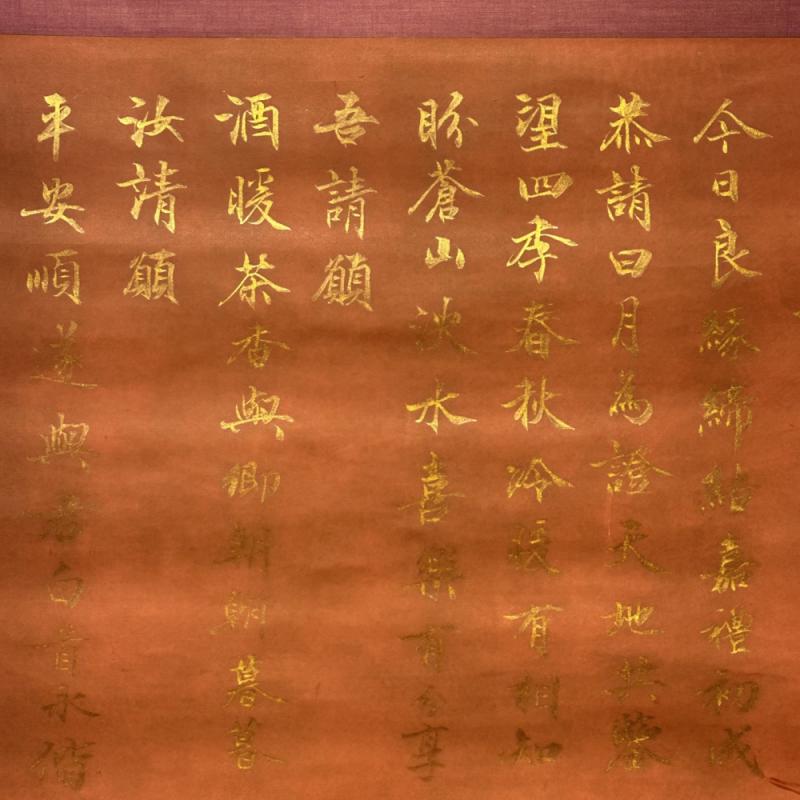 今日良緣締結嘉禮初成
恭請日月為證天地共鑒
望四季春秋冷暖有相知
盼蒼山泱水喜樂有分享
吾請願
酒暖茶香與卿朝朝暮暮
汝請願
平安順遂與君白首永偕